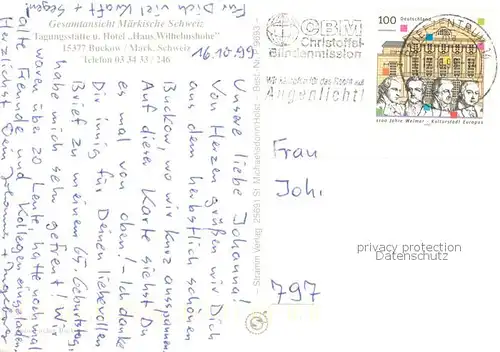 Gesamtansicht Märkische Schweiz
Tagungsstätte u. Hotel „Haus Wilhelmshöhe"
15377 Buckow / Märk. Schweiz
Telefon 03 34 33 / 246
16.10.99
Unsere liebe Johanna!
Von Herzen grüßen wir Dich
aus dem herbstlich schönen
Buckow, wo wir kurz ausspannen.
Auf dieser Karte siehst Du
es mal von oben! - Ich danke
Dir innig für Deinen liebevollen
Brief zu meinem 65. Geburtstag,
habe mich sehr gefreut! Wir
waren über 20 Leute, hatte nochmal
alte Freunde und Kollegen eingeladen.
Herzlichst Dein Johannes + Ingeborg
Für Dich viel Kraft +
Segen!
CBM
Christoffel-
Blindenmission
Augenlicht!
100
Deutschland
1100 Jahre Weimar _ Kulturstadt Europas
BRIEFZENTRUM
Frau
Joh.
797
privacy protection
Datenschutz
Stramm Verlag 25691 St. Michaelisdonn/Holst. Best. Nr.